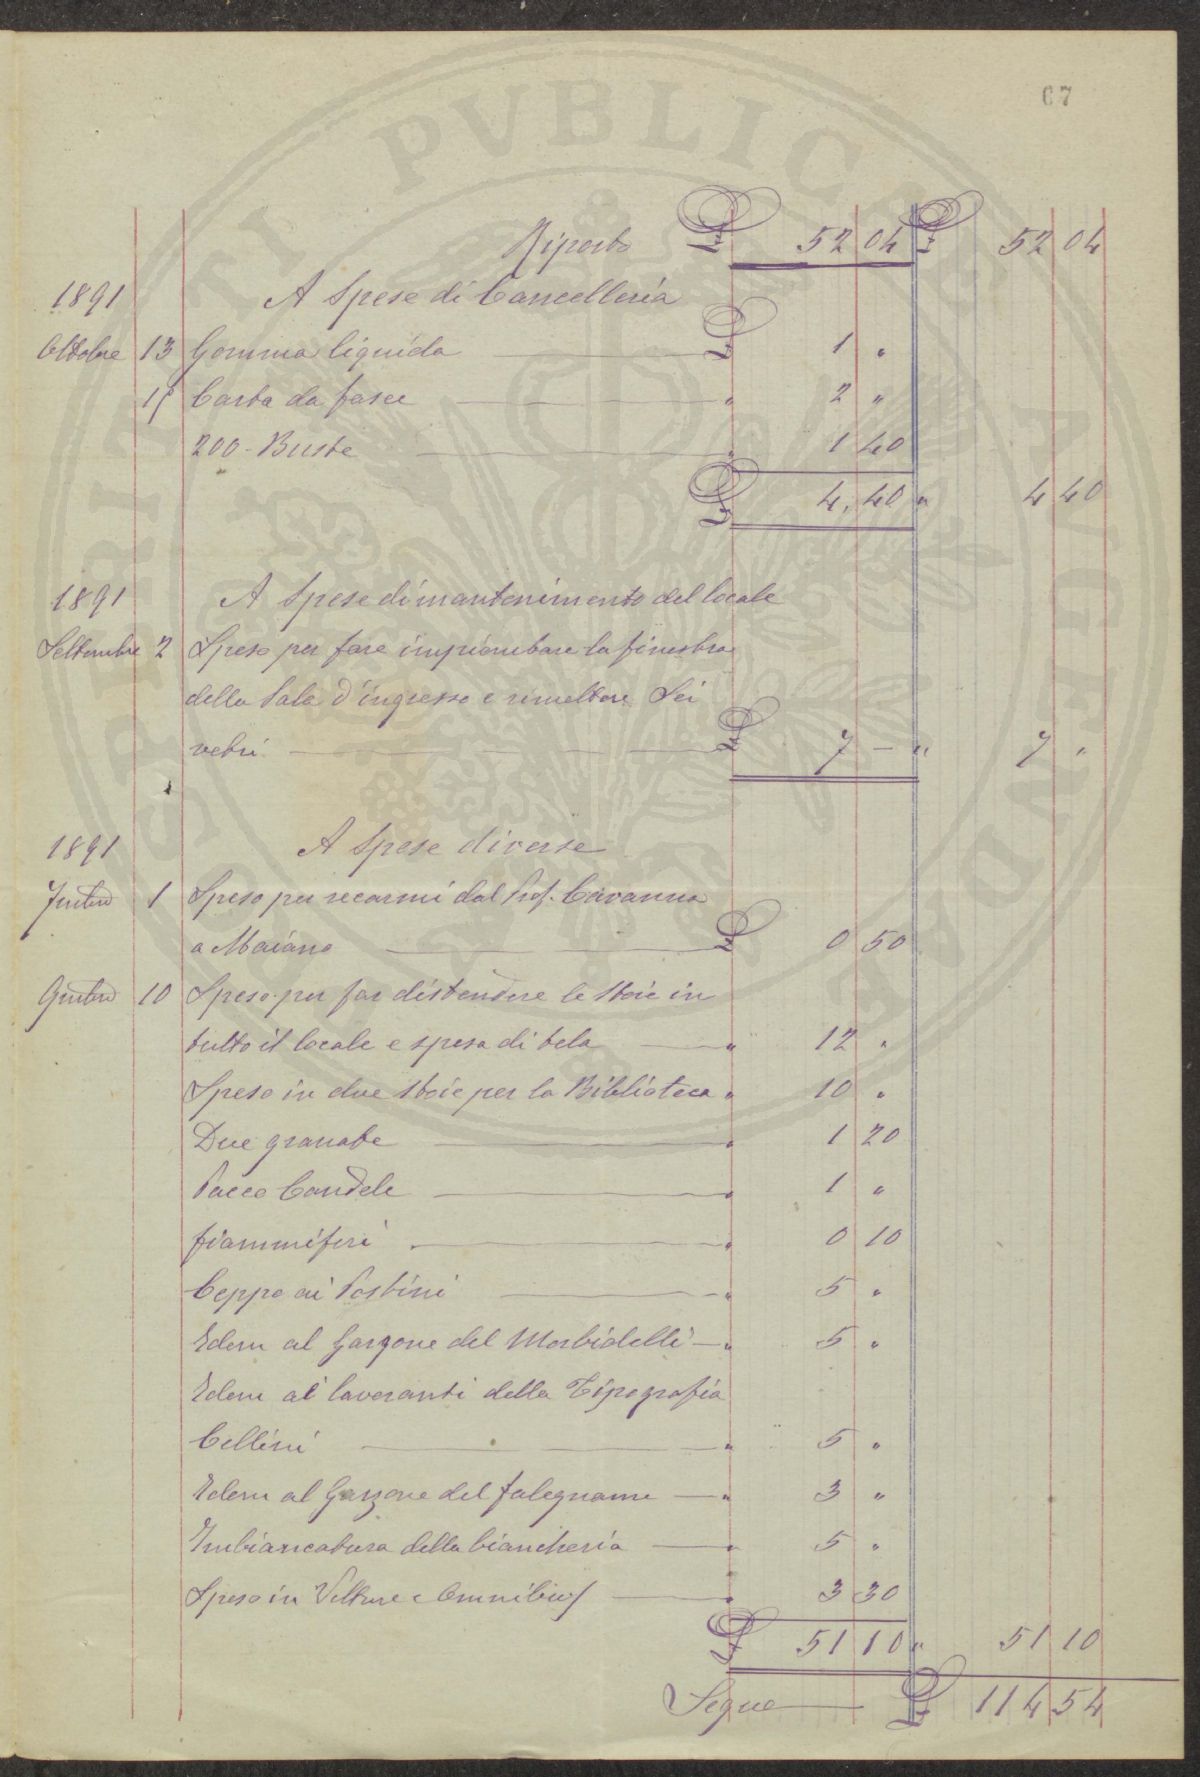 67
Riporto £ 52 04 £ 52 04
1891 A Spese di Cancelleria
Ottobre 13 Gomma liquida £ 1 "
15 Carta da fasce " 2 "
200 - Buste " 1 40
£ 4,40 " 4 40
1891 A Spese di mantenimento del locale
Settembre 2 Speso per fare impiombare la finestra
della Sala d'ingresso e rimettere Sei
vetri £ 7 - " 7 "
1891 A Spese diverse
1 Speso per recarmi dal Prof. Cavanna
a Maiano £ 0 50
10 Speso per far distendere le stoie in
tutto il locale e spesa di tela " 12 "
Speso in due stoie per la Biblioteca " 10 "
Due granate " 1 20
Pacco Candele " 1 "
fiammiferi " 0 10
Ceppo ai Postini " 5 "
Idem al Garzone del Morbidelli " 5 "
Idem ai lavoranti della Tipografia
Cellini " 5 "
Idem al Garzone del falegname " 3 "
Imbiancatura della biancheria " 5 "
Speso in Vetture e Omnibus " 3 30
£ 51 10 " 51 10
Segue £ 114 54
PVBLICAE